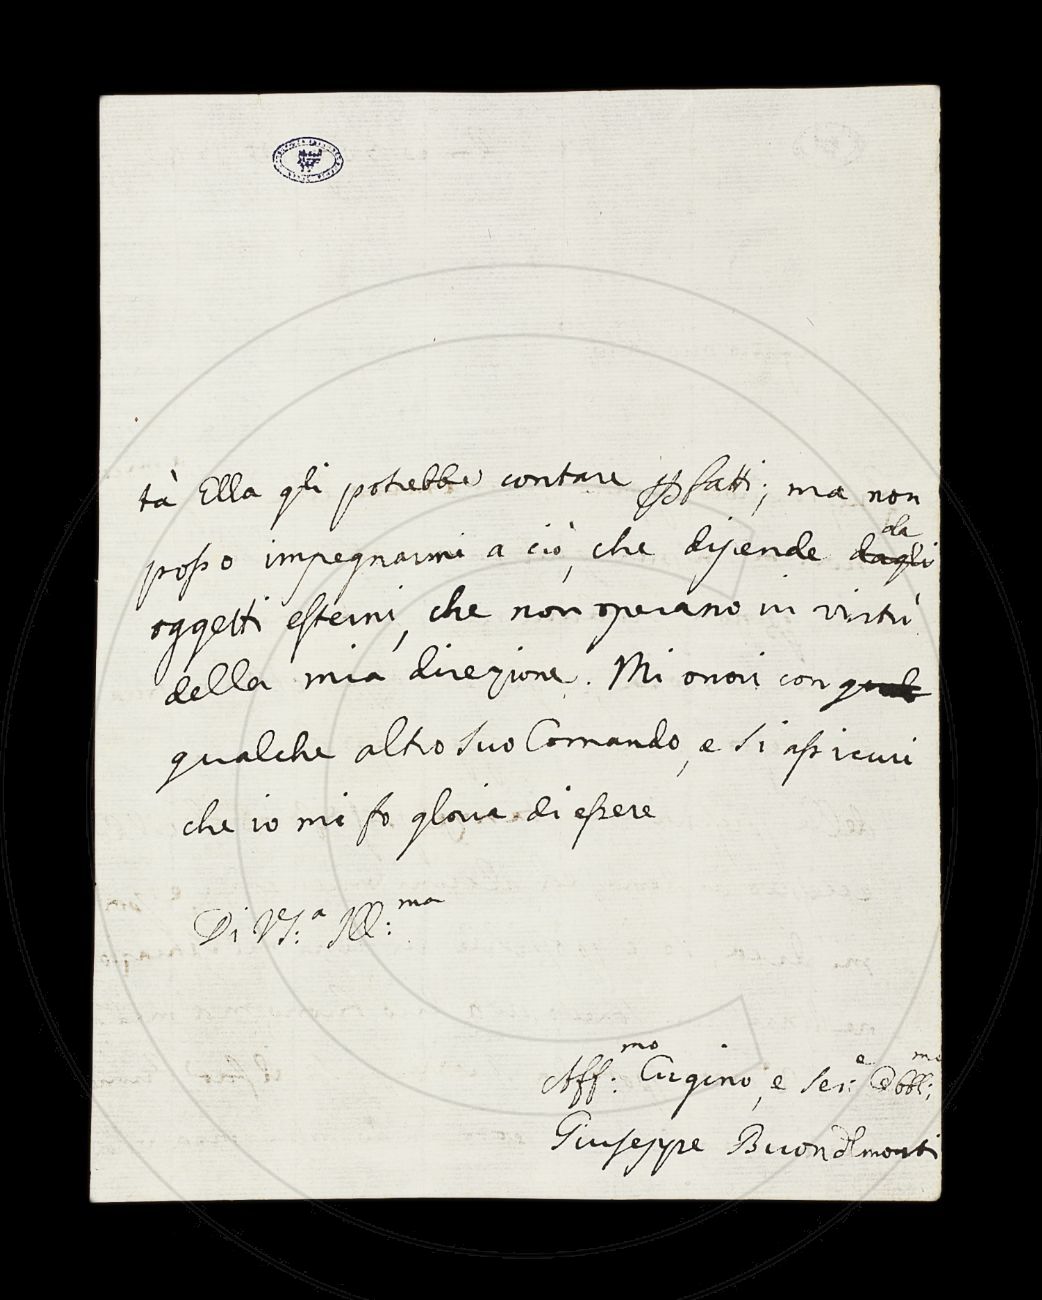 tà Ella gli potrebbe contare fatti; ma non
posso impegnarmi a ciò, che dipende dagli da
oggetti esterni, che non operano in virtù
della mia direzione. Mi onori con
qualche altro suo Comando, e si assicuri
che io mi fo gloria di essere
Di VS:a Ill:ma
Aff:mo Cugino, e Ser:e Obbl:mo
Giuseppe Buondelmonti